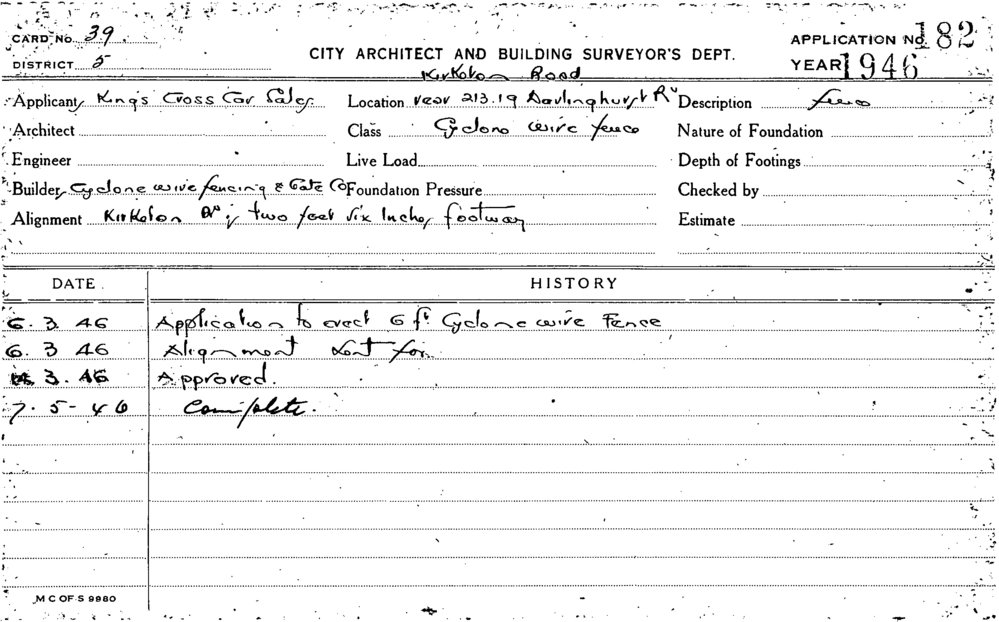 CARD No. 39
DISTRICT 5
CITY ARCHITECT AND BUILDING SURVEYOR'S DEPT.
APPLICATION No. 182
YEAR 1946
Kirketon Road
Applicant Kings Cross Car Sales Location rear 213.19 Darlinghurst Rd Description fence
Architect Class Cyclone wire fence Nature of Foundation
Engineer Live Load Depth of Footings
Builder Cyclone wire fencing & Gate Co Foundation Pressure Checked by
Alignment Kirketon Rd; two feet six Inches footway Estimate
DATE HISTORY
6. 3. 46 Application to erect 6 ft Cyclone wire Fence
6. 3 46 Alignment sent for
3. 46 Approved.
7. 5 - 46 Complete.
M C OF S 9980